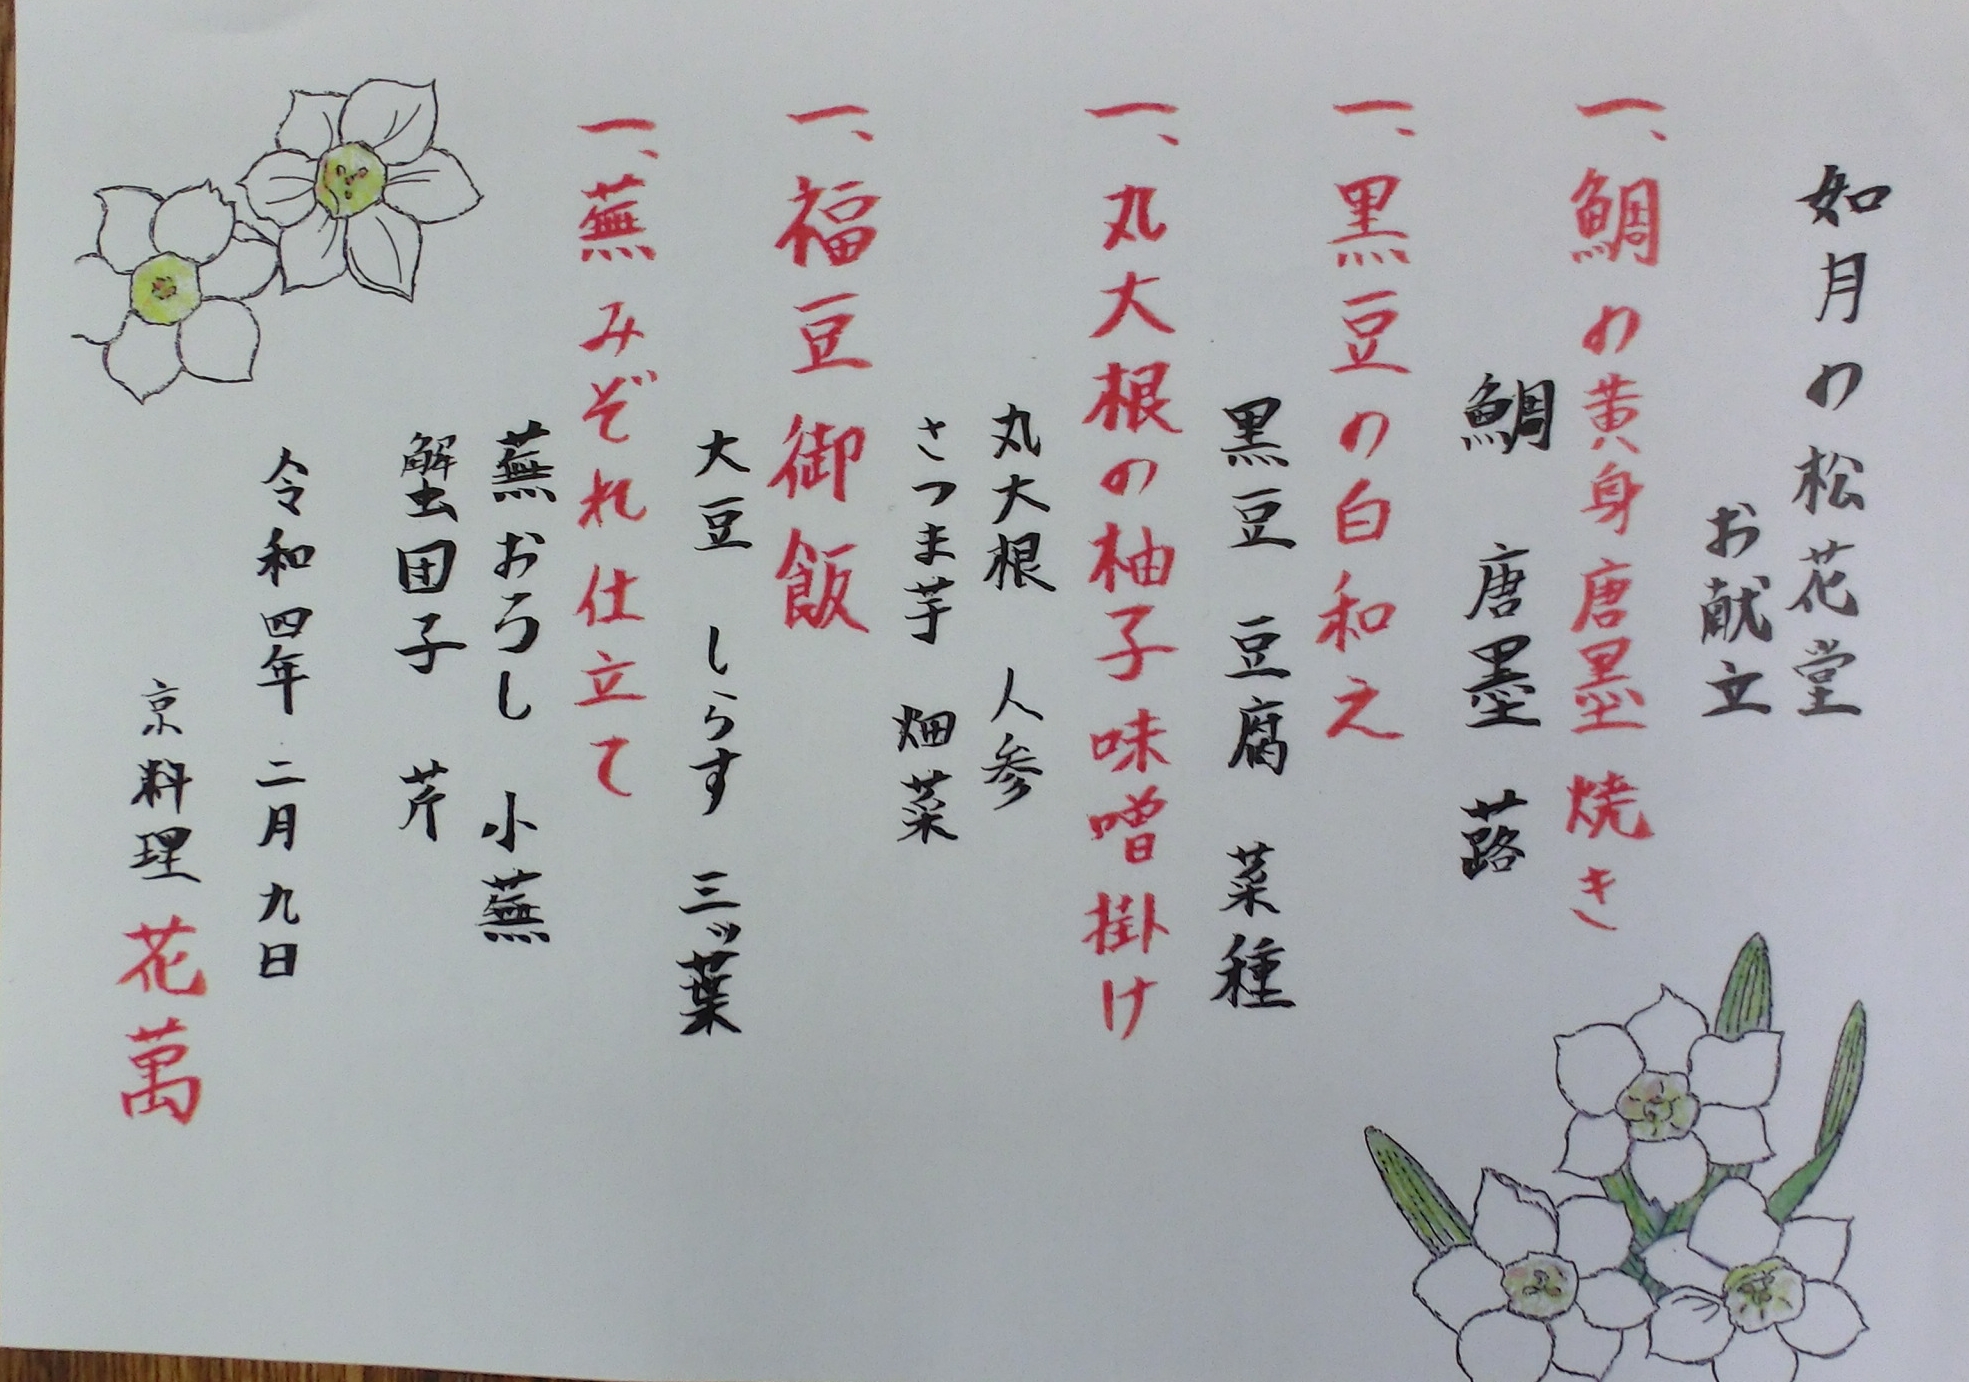 如月の松花堂
お献立
一、鯛の黄身唐墨焼き
鯛 唐墨 蕗
一、黒豆の白和え
黒豆 豆腐 菜種
一、丸大根の柚子味噌掛け
丸大根 人参
さつま芋 畑菜
一、福豆御飯
大豆 しらす 三ッ葉
一、蕪みぞれ仕立て
蕪おろし 小蕪
蟹団子 芹
令和四年 二月 九日
京料理 花萬